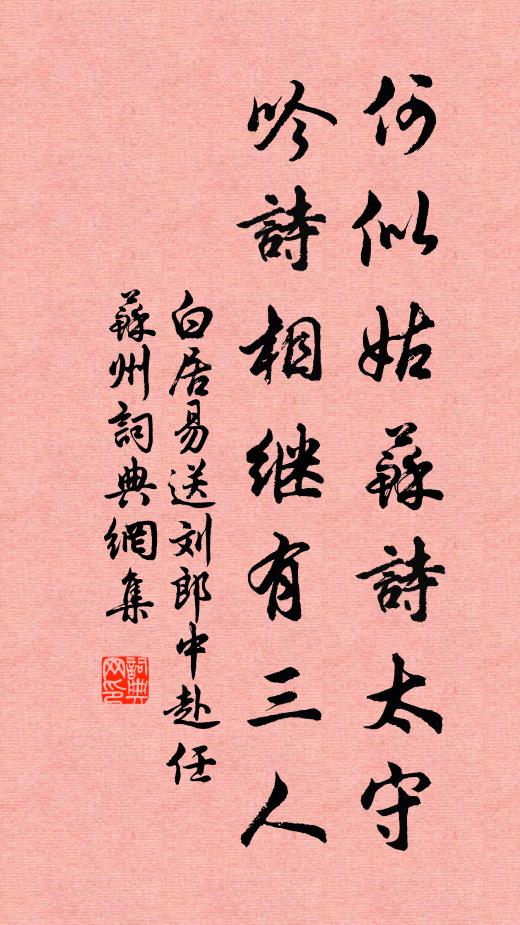 何似姑蘇詩太守
吟詩相继有三人
白居易送刘郎中赴任
蘇州詞典網集
詞典网印